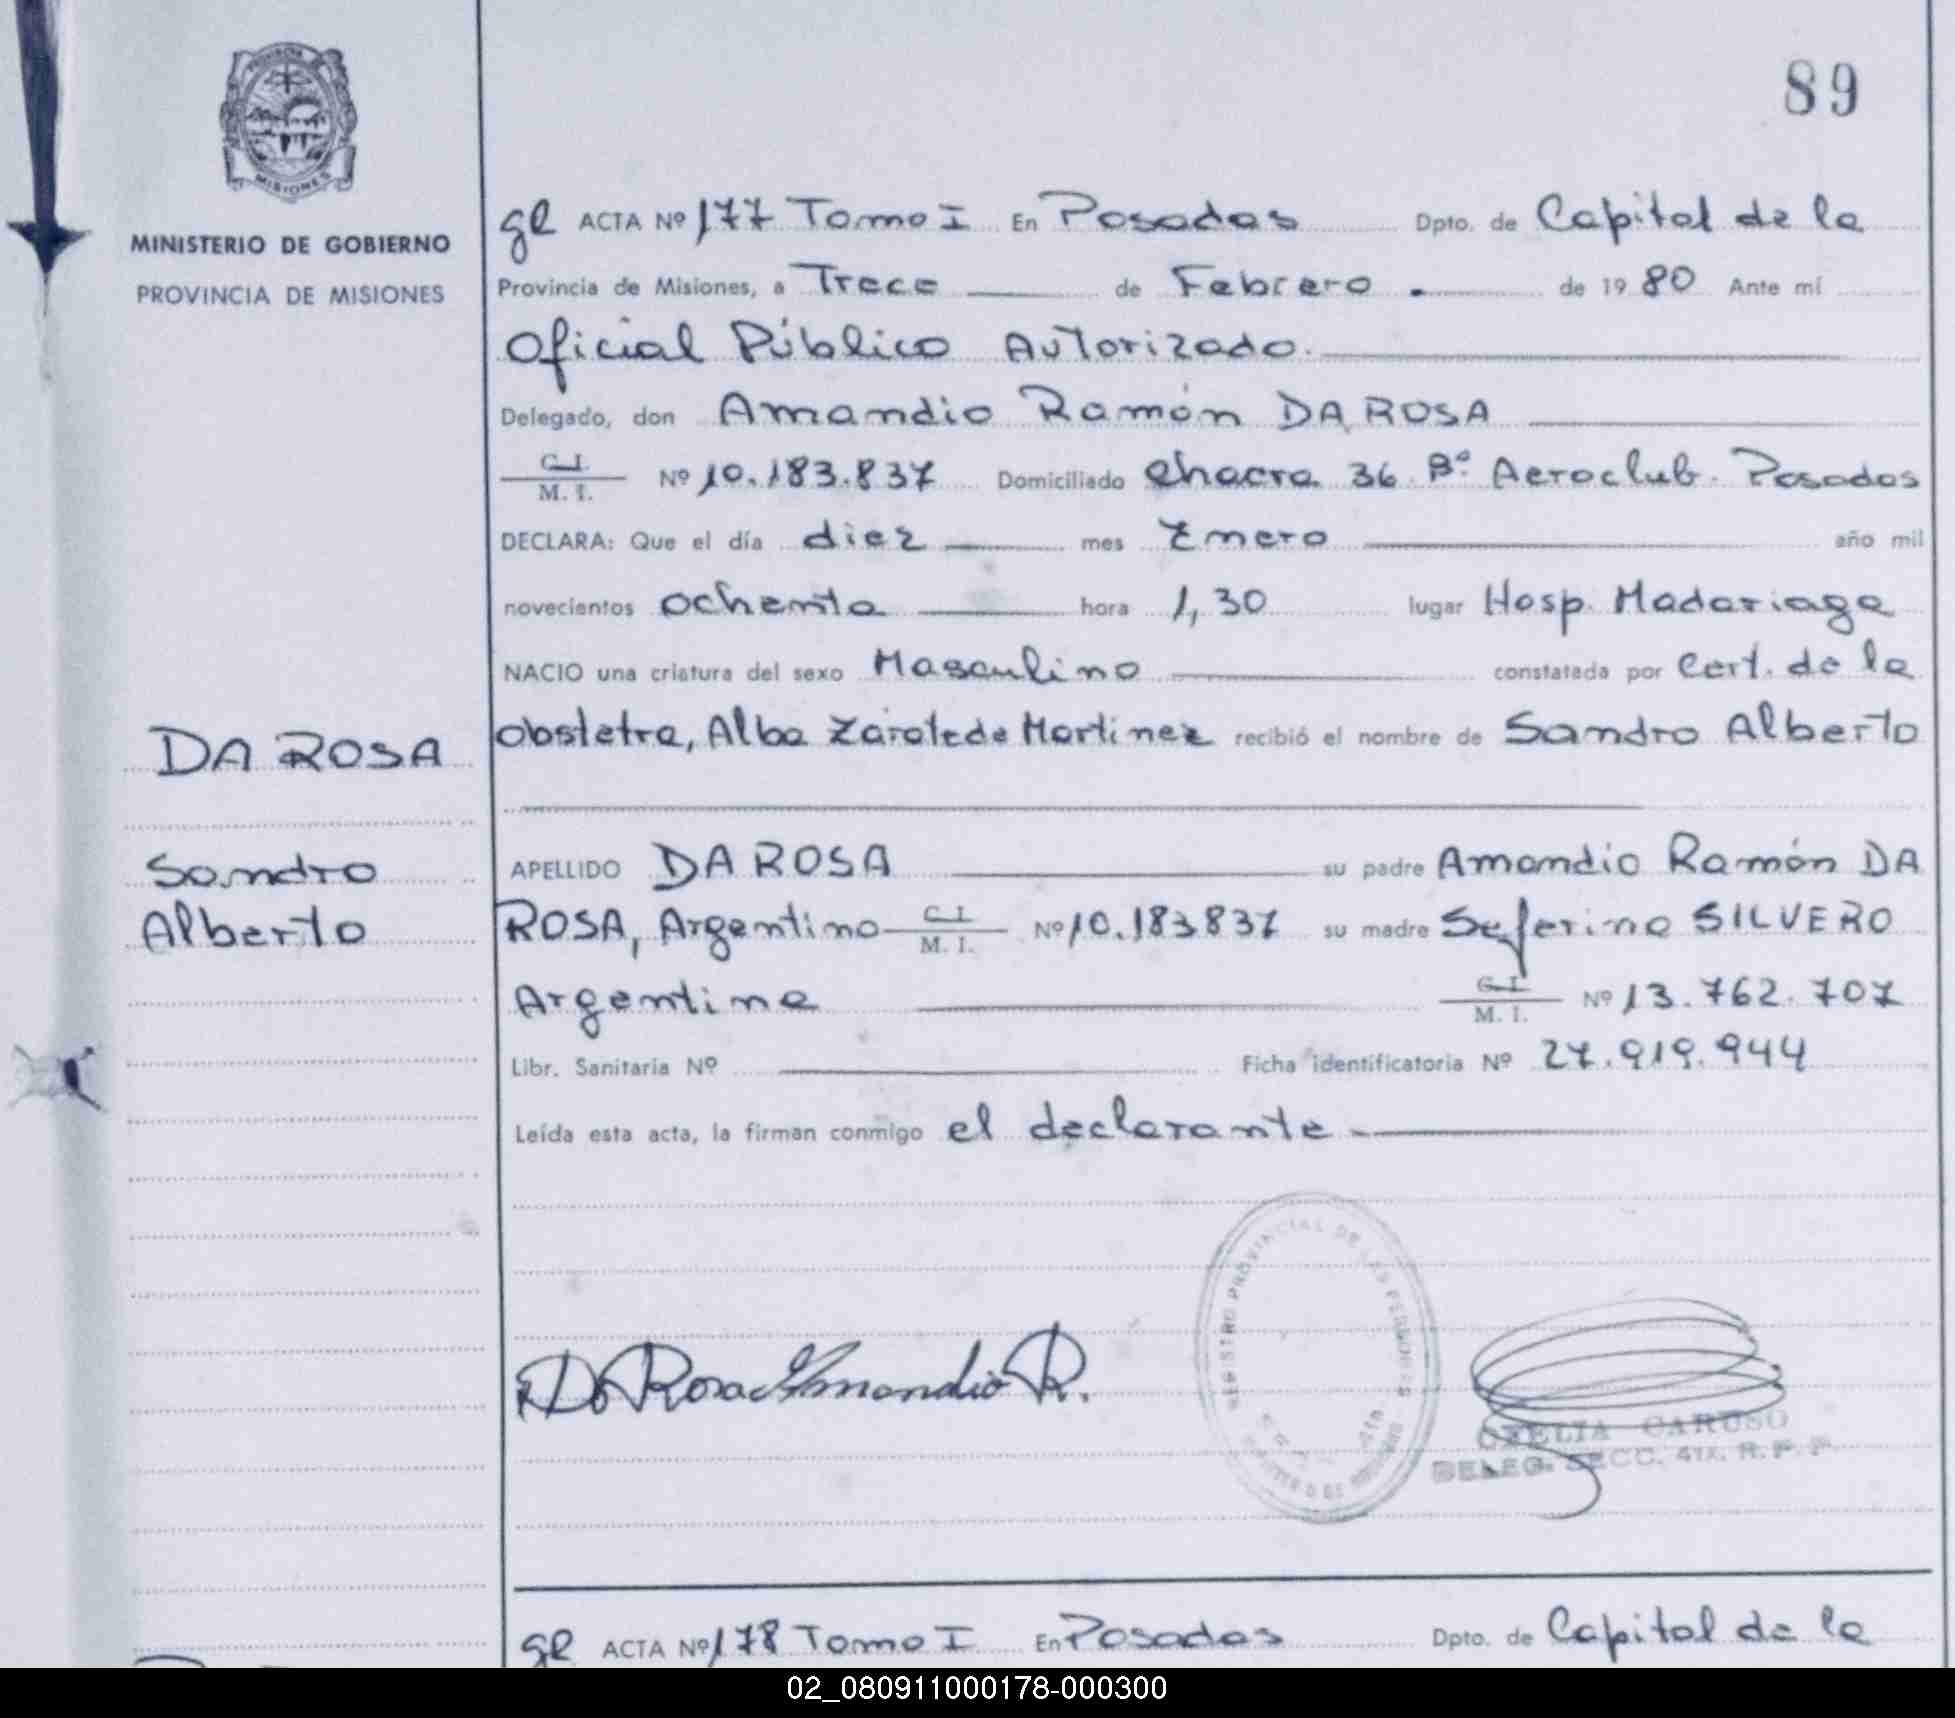 89
PROVINCIA
MISIONES
MINISTERIO DE GOBIERNO
PROVINCIA DE MISIONES
DA ROSA
Sandro
Alberto
ge ACTA Nº 177 Tomo I En Posadas Dpto. de Capital de la
Provincia de Misiones, a Trece de Febrero . de 19 80 Ante mí
Oficial Público Autorizado.
Delegado, don Amandio Ramón DA ROSA
C.I.
M. I. Nº 10.183.837 Domiciliado Chacra 36 Bº Aeroclub. Posadas
DECLARA: Que el día diez mes Enero año mil
novecientos ochenta hora 1,30 lugar Hosp. Madariaga
NACIO una criatura del sexo Masculino constatada por Cert. de la
Obstetra, Alba Zárate de Martinez recibió el nombre de Sandro Alberto
APELLIDO DA ROSA su padre Amandio Ramón DA
ROSA, Argentino C.I. M. I. Nº 10.183837 su madre Seferina SILVERO
Argentina C.I. M. I. Nº 13.762.707
Libr. Sanitaria Nº Ficha identificatoria Nº 27.919.944
Leída esta acta, la firman conmigo el declarante
REGISTRO PROVINCIAL DE LAS PERSONAS
Da Rosa Amandio R.
CARUSO
DELEG. SECC. 4ta. R. P. P.
ge ACTA Nº 178 Tomo I En Posadas Dpto. de Capital de la
02_080911000178-000300